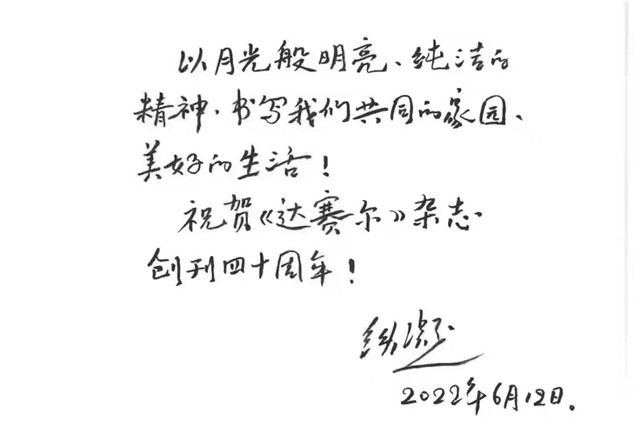 以月光般明亮、纯洁的
精神，书写我们共同的家园、
美好的生活！
祝贺《达赛尔》杂志
创刊四十周年！
铁凝
2022年6月12日.